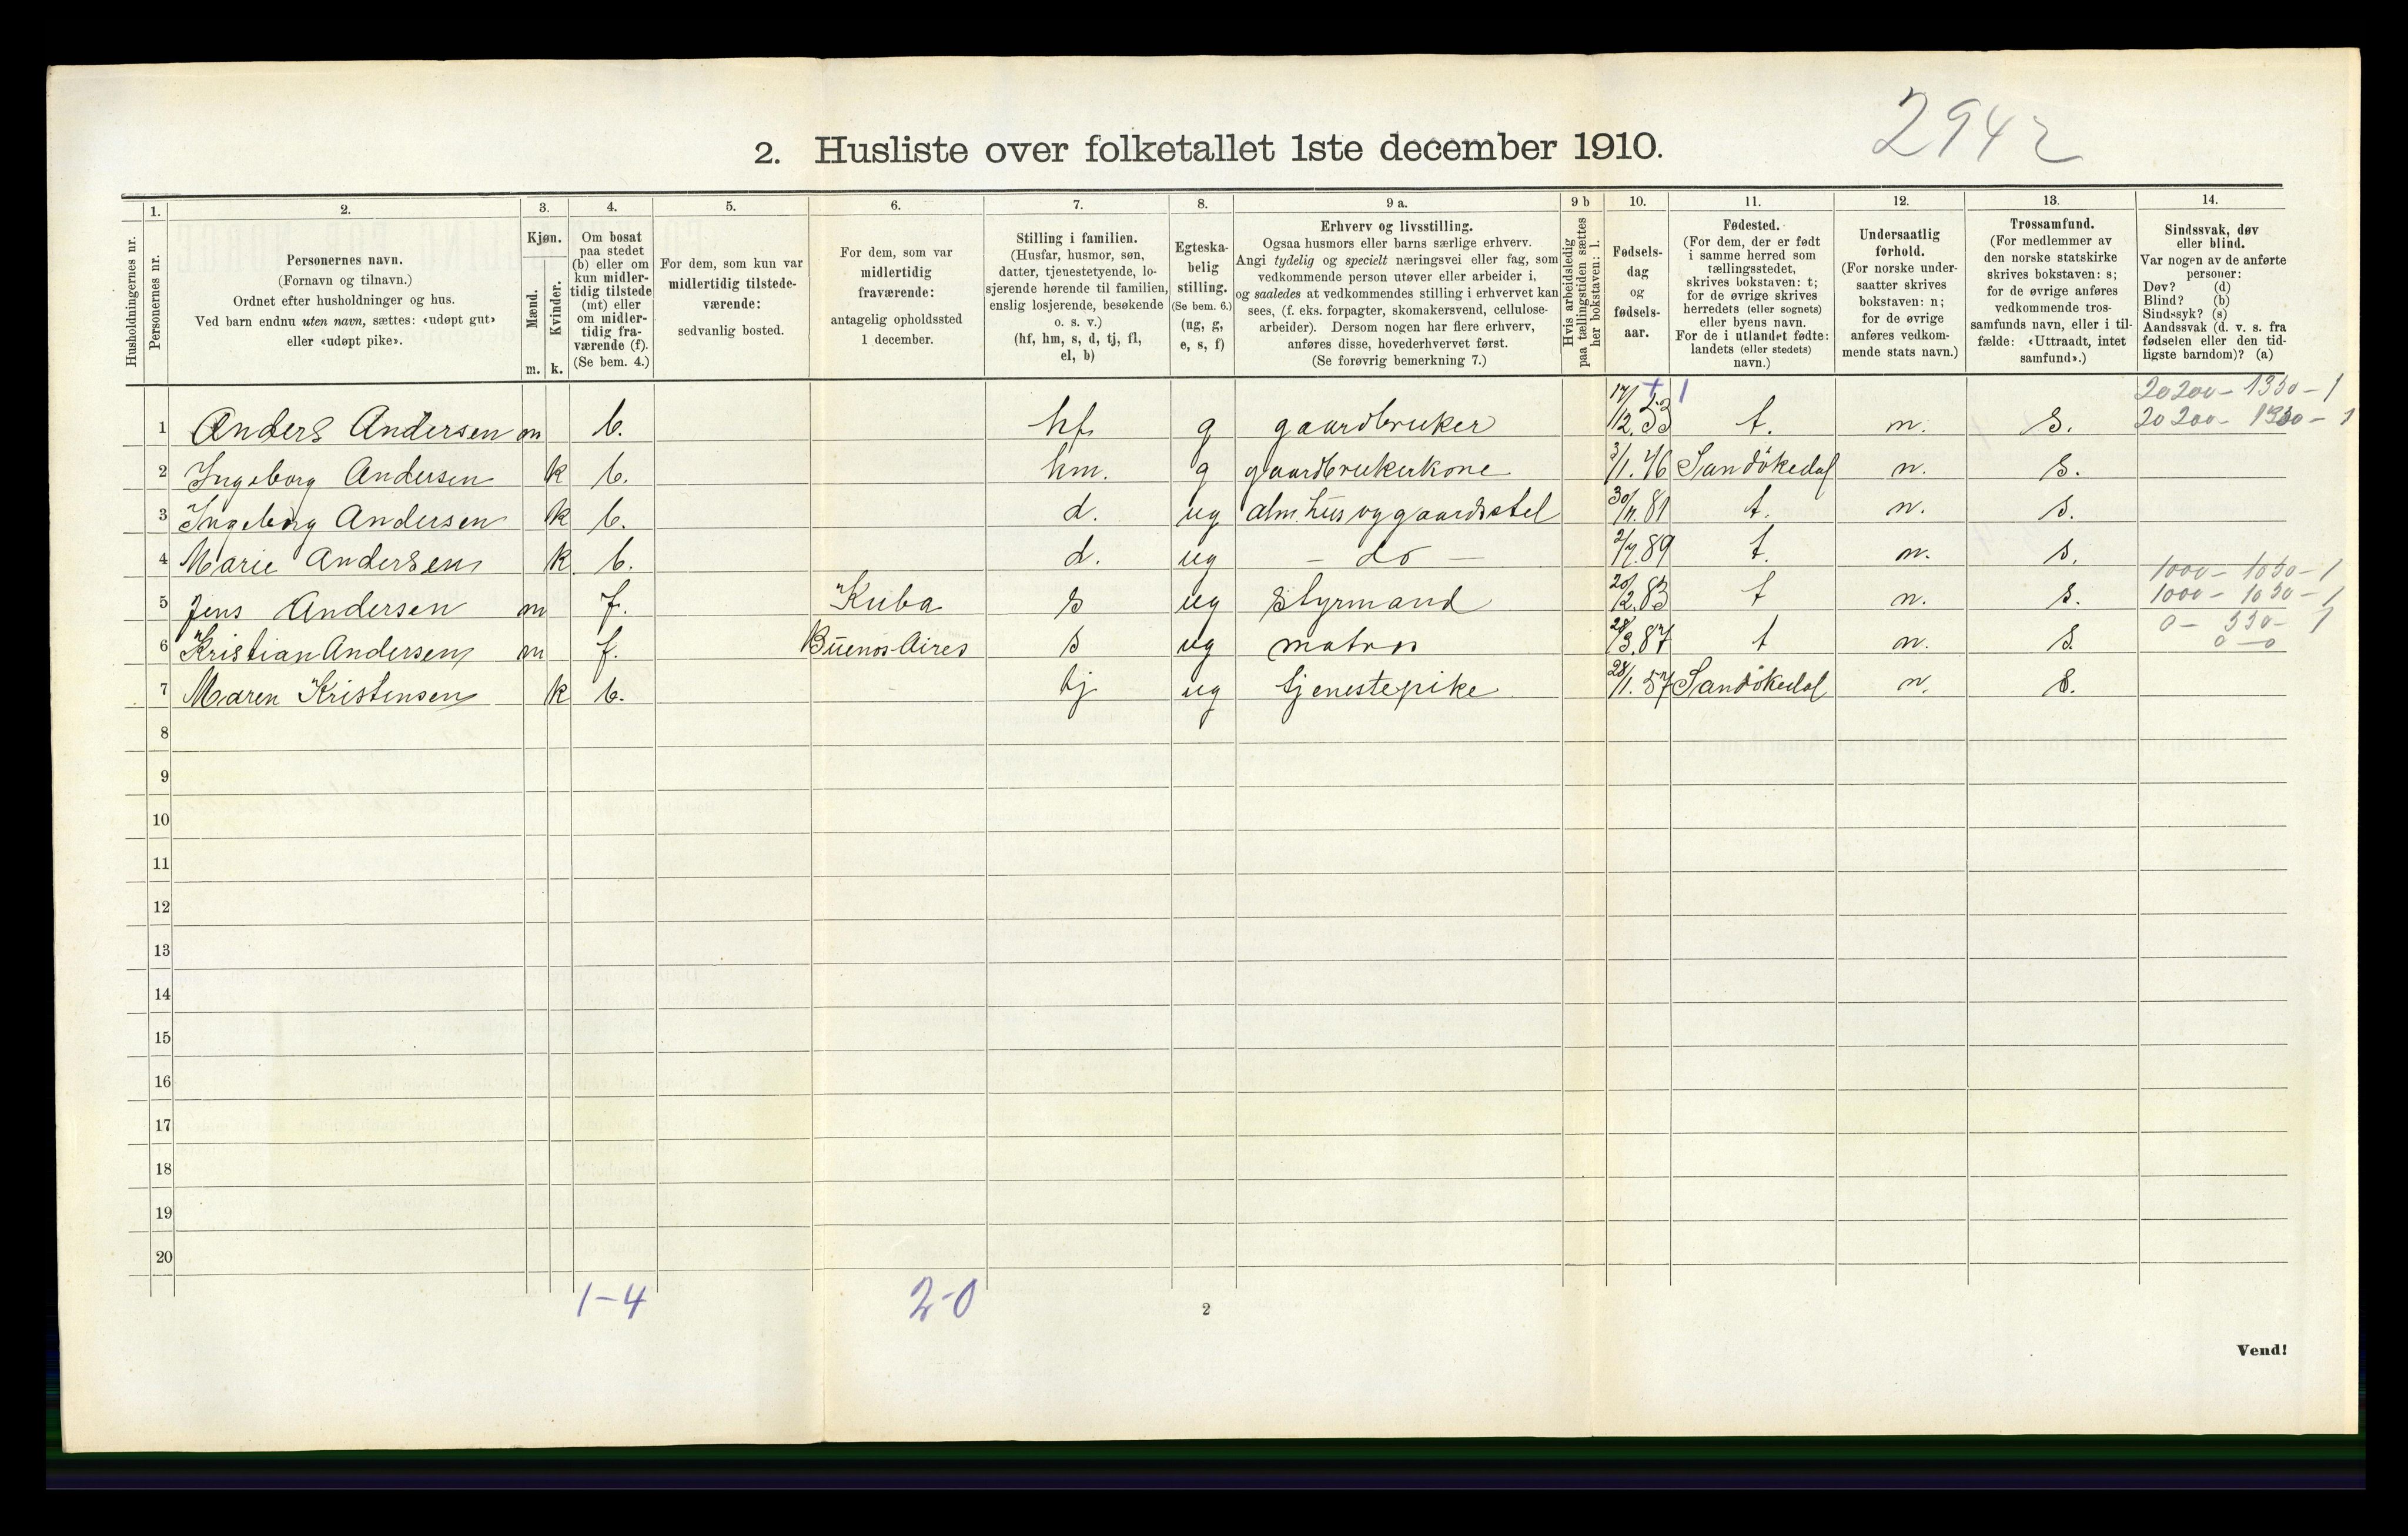 2942
2. Husliste over folketallet 1ste december 1910.
Husholdningernes nr.
1. Personernes nr.
2. Personernes navn.
(Fornavn og tilnavn.)
Ordnet efter husholdninger og hus.
Ved barn endnu uten navn, sættes: «udøpt gut»
eller «udøpt pike».
3. Kjøn.
Mænd. Kvinder.
m. k.
4. Om bosat
paa stedet
(b) eller om
kun midler-
tidig tilstede
(mt) eller
om midler-
tidig fra-
værende (f).
(Se bem. 4.)
5. For dem, som kun var
midlertidig tilstede-
værende:
sedvanlig bosted.
6. For dem, som var
midlertidig
fraværende:
antagelig opholdssted
1 december.
7. Stilling i familien.
(Husfar, husmor, søn,
datter, tjenestetyende, lo-
sjerende hørende til familien,
enslig losjerende, besøkende
o. s. v.)
(hf, hm, s, d, tj, fl,
el, b)
8. Egteska-
belig
stilling.
(Se bem. 6.)
(ug, g,
e, s, f)
9 a. Erhverv og livsstilling.
Ogsaa husmors eller barns særlige erhverv.
Angi tydelig og specielt næringsvei eller fag, som
vedkommende person utøver eller arbeider i,
og saaledes at vedkommendes stilling i erhvervet kan
sees, (f. eks. forpagter, skomakersvend, cellulose-
arbeider). Dersom nogen har flere erhverv,
anføres disse, hovederhvervet først.
(Se forøvrig bemerkning 7.)
9 b Hvis arbeidsledig
paa tællingstiden sættes
her bokstaven: l.
10. Fødsels-
dag
og
fødsels-
aar.
11. Fødested.
(For dem, der er født
i samme herred som
tællingsstedet,
skrives bokstaven: t;
for de øvrige skrives
herredets (eller sognets)
eller byens navn.
For de i utlandet fødte:
landets (eller stedets)
navn.)
12. Undersaatlig
forhold.
(For norske under-
saatter skrives
bokstaven: n;
for de øvrige
anføres vedkom-
mende stats navn.)
13. Trossamfund.
(For medlemmer av
den norske statskirke
skrives bokstaven: s;
for de øvrige anføres
vedkommende tros-
samfunds navn, eller i til-
fælde: «Uttraadt, intet
samfund».)
14. Sindssvak, døv
eller blind.
Var nogen av de anførte
personer:
Døv? (d)
Blind? (b)
Sindssyk? (s)
Aandssvak (d. v. s. fra
fødselen eller den tid-
ligste barndom)? (a)
20200 - 1330 - 1
1 Anders Andersen m b. hf g gaardbruker 17/12.53 t. n. s. 20200 - 1330 - 1
2 Ingeborg Andersen k b. hm. g gaardbrukerkone 3/1.46 Sandökedal n. s.
3 Ingeborg Andersen k b. d. ug alm. hus og gaardsstel 30/11.81 t. n. s.
4 Marie Andersen k b. d. ug - do - 2/7.89 t. n. s.
1000 - 1030 - 1
5 Jens Andersen m f. Kuba s ug styrmand 20/12.83 t n. s. 1000 - 1030 - 1
0 - 530 - 1
6 Kristian Andersen m f. Buenos-Aires s ug matros 28/3.87 t n. s. 0 - 0
7 Maren Kristensen k b. tj ug tjenestepike 28/1.57 Sandökedal n. s.
8
9
10
11
12
13
14
15
16
17
18
19
20
1-4 2-0
2
Vend!